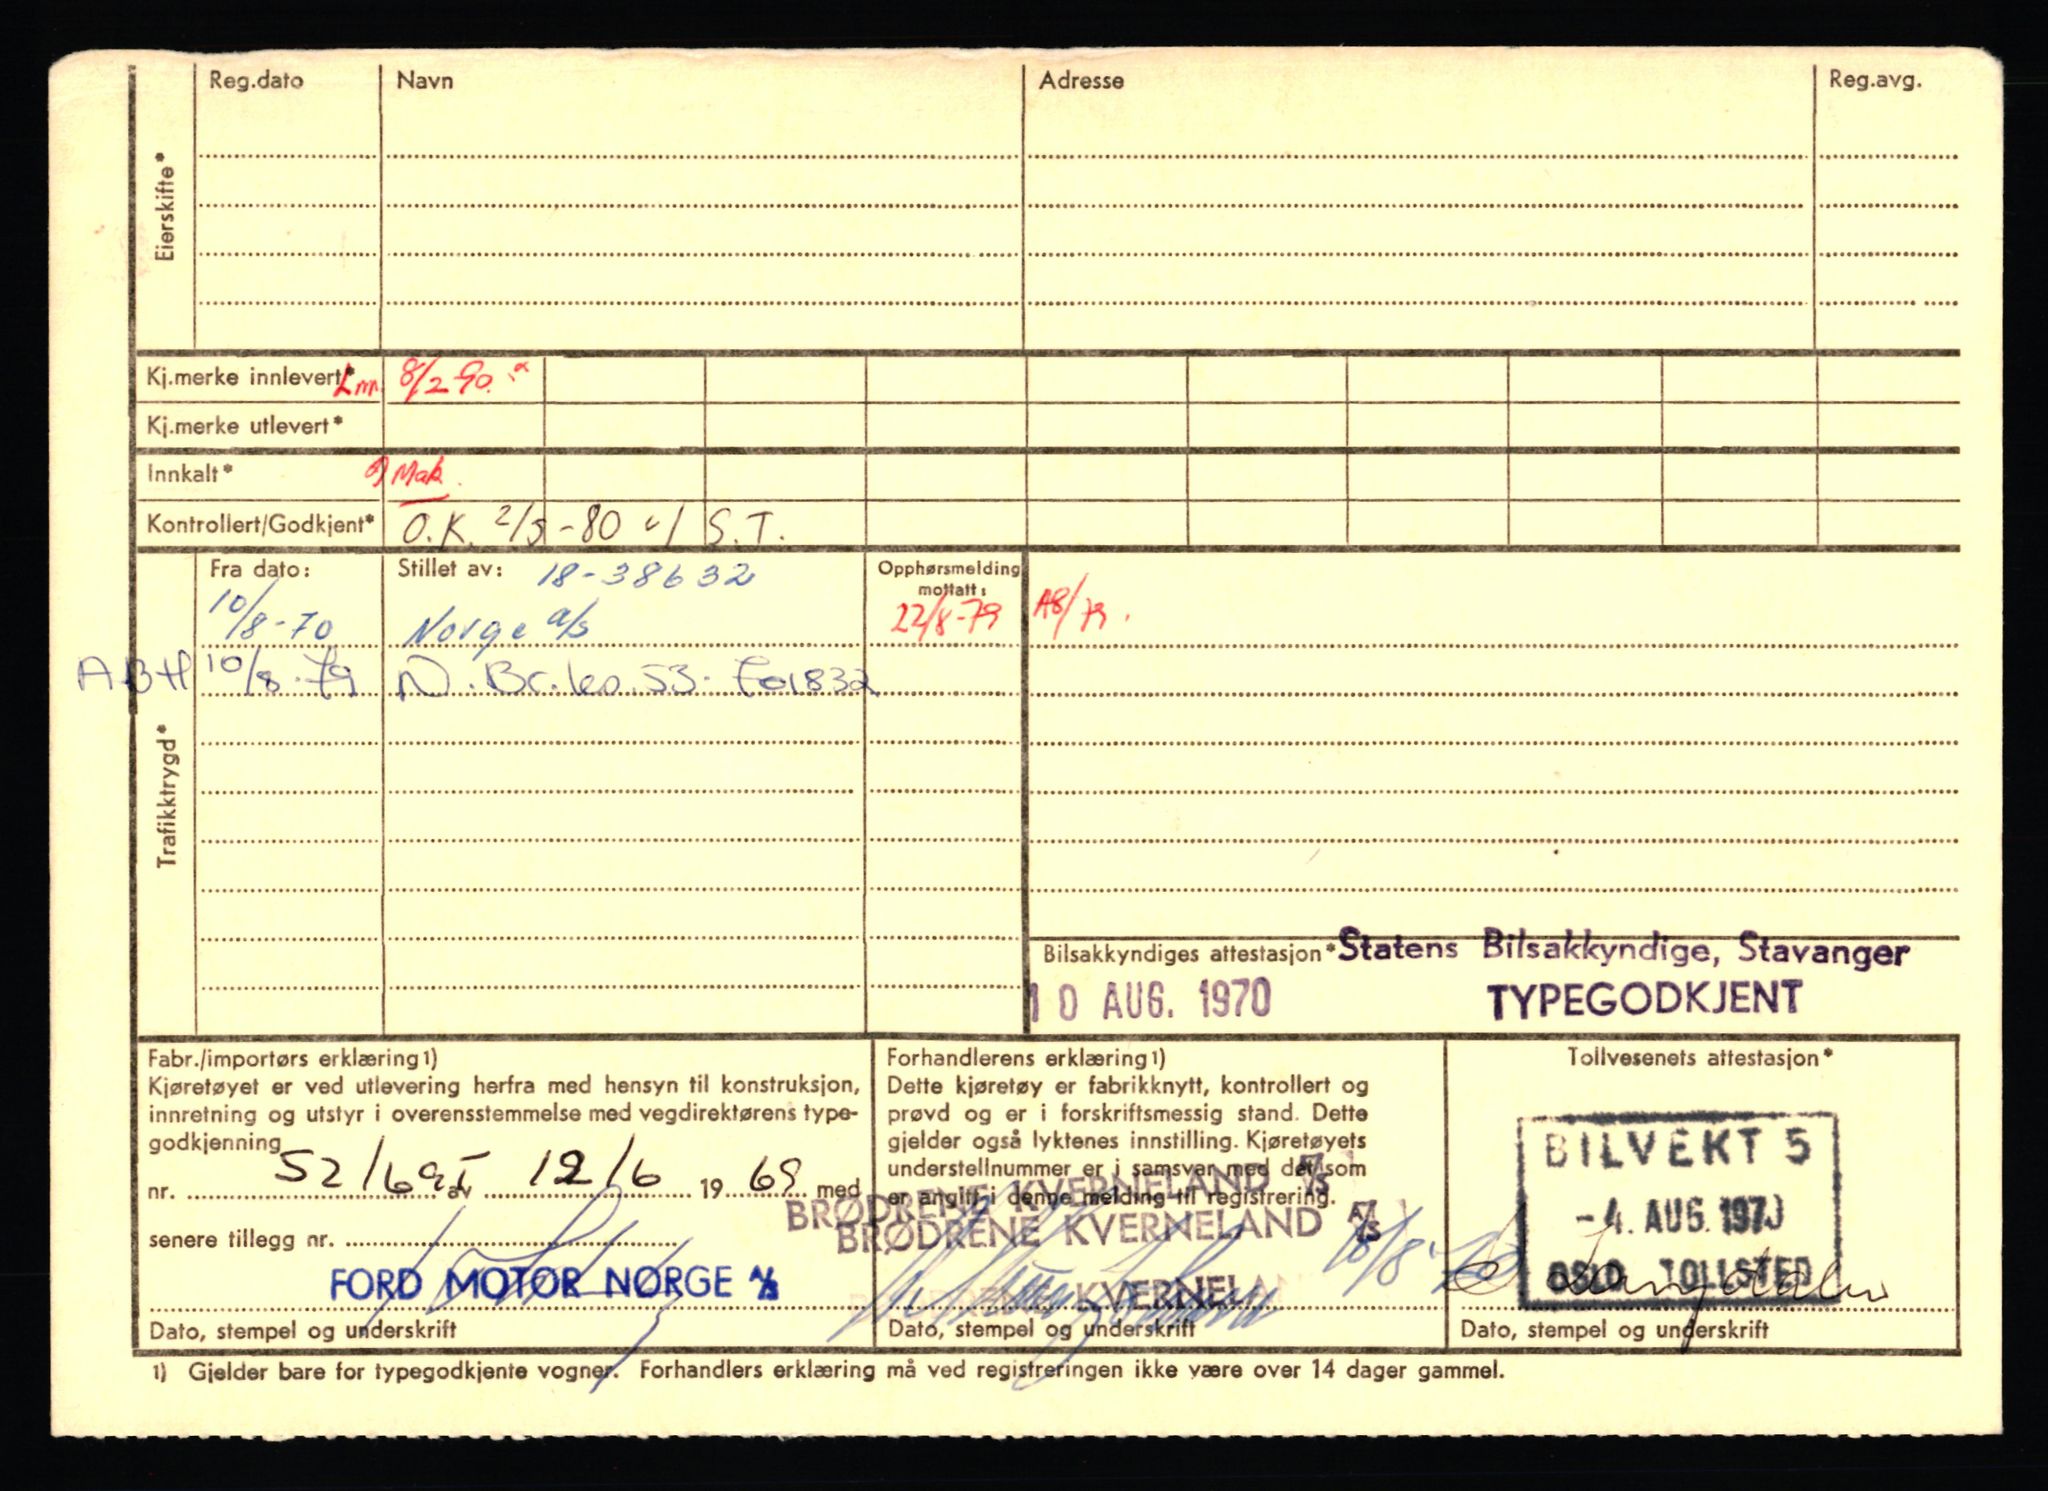 Reg.dato Navn Adresse Reg.avg.
Eierskifte*
Kj.merke innlevert* 8/2 90.
Kj.merke utlevert*
Innkalt* Mak.
Kontrollert/Godkjent* O.K. 2/5-80 S.T.
Trafikktrygd*
Fra dato: Stillet av: 18-38632 Opphørsmelding
mottatt:
10/8-70 Norge a/s 22/8-79 A8/79.
ABH 10/8-79 N.Br.ko.53.
Bilsakkyndiges attestasjon* Statens Bilsakkyndige, Stavanger
10 AUG. 1970 TYPEGODKJENT
Fabr./importørs erklæring1)
Kjøretøyet er ved utlevering herfra med hensyn til konstruksjon,
innretning og utstyr i overensstemmelse med vegdirektørens type-
godkjenning
nr. 52/69I av 12/6 1969 med
senere tillegg nr.
FORD MOTOR NORGE A/S
Dato, stempel og underskrift
Forhandlerens erklæring1)
Dette kjøretøy er fabrikknytt, kontrollert og
prøvd og er i forskriftsmessig stand. Dette
gjelder også lyktenes innstilling. Kjøretøyets
understellnummer er i samsvar med det som
er angitt i denne melding til registrering.
BRØDRENE KVERNELAND A/S
BRØDRENE KVERNELAND A/S
10/8-70
KVERNELAN
Dato, stempel og underskrift
Tollvesenets attestasjon*
BILVEKT 5
-4. AUG. 1970
OSLO TOLLSTED
Dato, stempel og underskrift
1) Gjelder bare for typegodkjente vogner. Forhandlers erklæring må ved registreringen ikke være over 14 dager gammel.